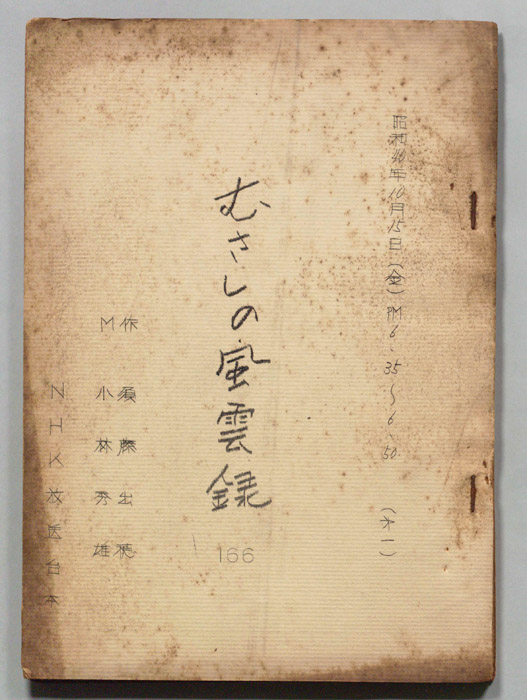 昭和40年10月15日（金）PM6.35〜6.50
（才一）
むさしの風雲録
166
作 須藤出穂
M 小林秀雄
NHK放送台本